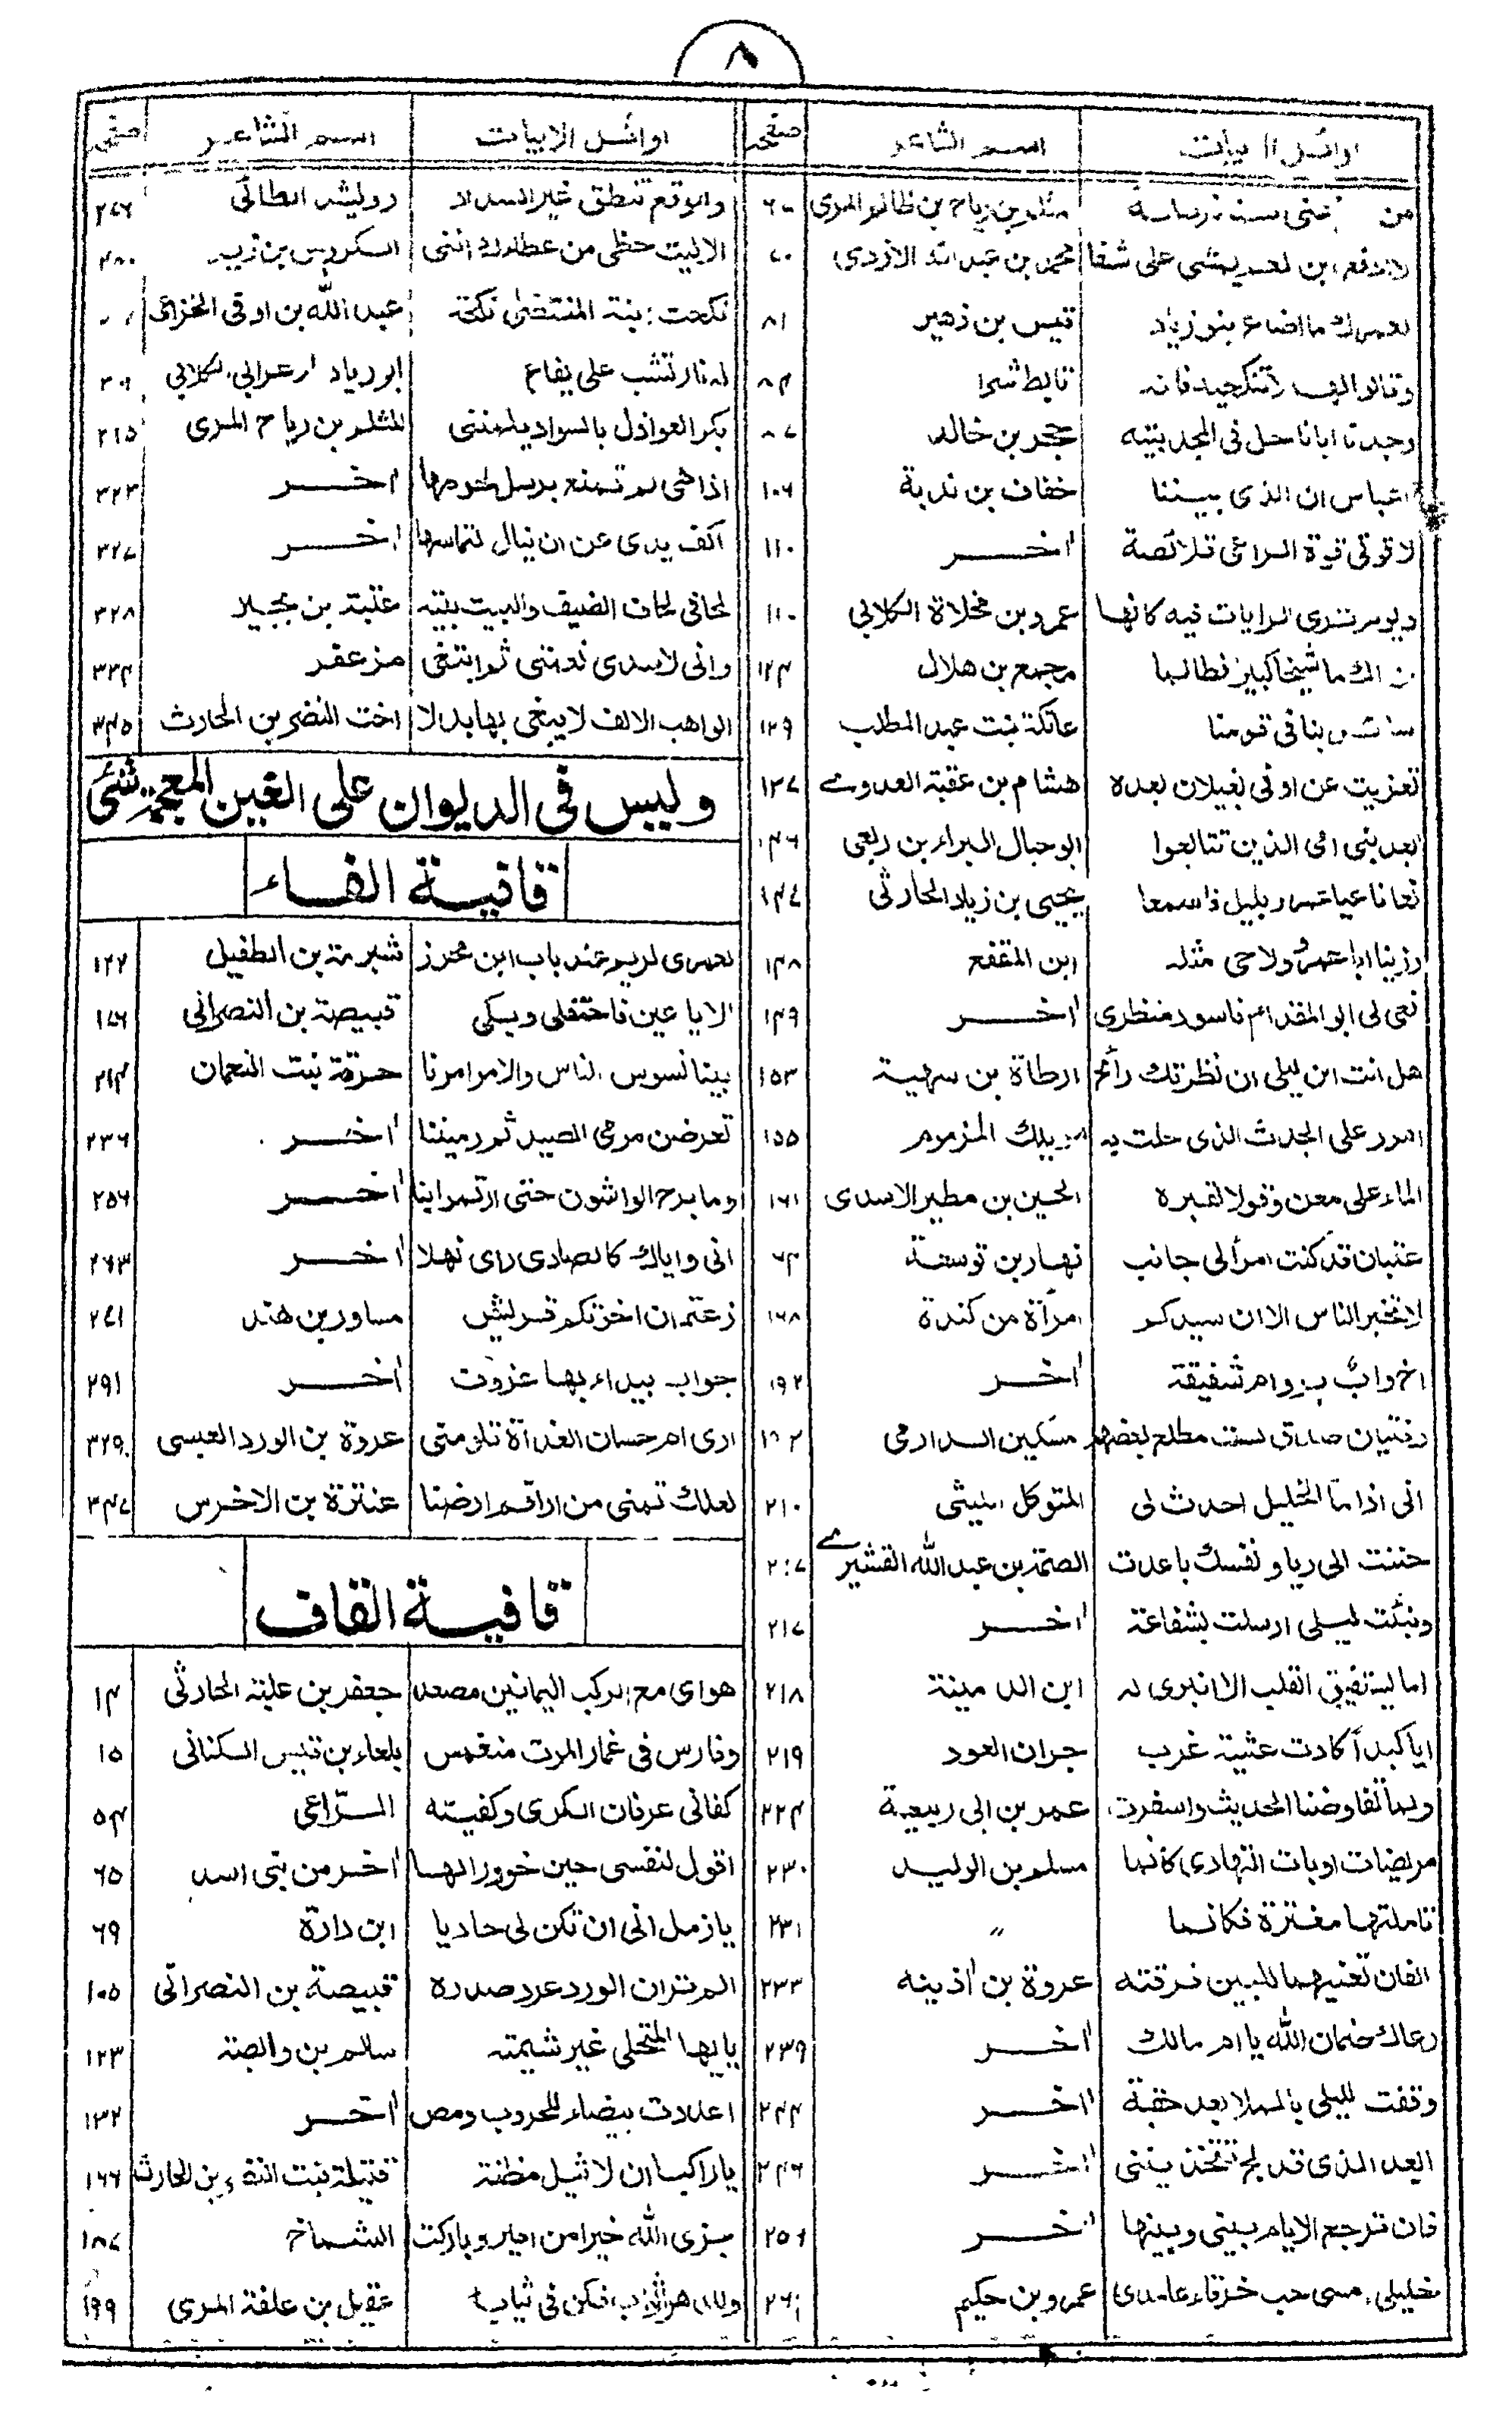 ٨
اوائل الابيات اسم الشاعر صفحه
من سنانا رسالة مثلم بن رياح بن ظالم المرى ٦٠
لا تدفعن ابن لعمر يمشى على شفا محمد بن عبد الله الازدى ٧٠
لعمرك ما اضاع بنو زياد قيس بن زهير ٨١
وقالوا لها لا تنكحيه فانه تابط شرا ٨٢
وجدنا ابانا حل فى المجد بيته حجر بن خالد ٨٧
اعباس ان الذى بيننا خفاف بن ندبة ١٠٦
لا قوتى قوة الراعى قلائصة اخر ١١٠
ويوم ترى الرايات فيه كانها عمرو بن مخلاة الكلابى ١١٠
ن اك ما شيخا كبيرا فطالما مجمع بن هلال ١٢٤
سائل بنا فى قومنا عاتكة بنت عبد المطلب ١٢٩
تعزيت عن اوفى بغيلان بعده هشام بن عقبة العدوے ١٣٧
ابعد بنى امى الذين تتابعوا ابو حبال البراء بن ربعى ١٤٦
نعا ناعيا عمرو بليل فاسمعا يحيى بن زياد الحارثى ١٤٧
رزينا ابا عمرو ولا حى مثله ابن المقفع ١٤٨
نعى لى ابو المقدام فاسود منظرى اخر ١٤٩
هل انت ابن ليلى ان نظرتك رائح ارطاة بن سهية ١٥٣
امرر على الجدث الذى حلت به مويلك المزموم ١٥٥
الما على معن وقولا لقبره الحسين بن مطير الاسدى ١٦١
عتبان قد كنت امرأ لى جانب نهار بن توسعة ٦٤
لا تخبر الناس الا ان سيدكم امرأة من كندة ١٦٨
اخ واب بر وام شفيقة اخر ١٩٢
وفتيان صدق لست مطلع بعضهم مسكين الدارمى
انى اذا ما الخليل احدث لى المتوكل الليثى ٢١٠
حننت الى ريا ونفسك باعدت الصمة بن عبد الله القشيرے
ونبئت ليلى ارسلت بشفاعة اخر ٢١٧
اما يستفيق القلب الا انبرى له ابن الدمينة ٢١٨
ايا كبدا كادت عشية غرب جران العود ٢١٩
ولما تفاوضنا الحديث واسفرت عمر بن ابى ربيعة ٢٢٤
مريضات اوبات التهادى كانما مسلم بن الوليد ٢٣٠
تاملتها مغترة فكانما ״ ٢٣١
الفان تعنيهما للبين فرقته عروة بن اذينه ٢٣٣
رعاك ضمان الله يا ام مالك اخر ٢٣٩
وقفت لليلى بالملا بعد حقبة اخر ٢٤٤
ابعد الذى قد لج تتخذيننى اخر ٢٤٦
فان ترجع الايام بينى وبينها اخر ٢٥٦
خليلى امسى حب خرقاء عامدى عمرو بن حكيم ٢٦١
اوائل الابيات اسم الشاعر صفحه
والوقع تنطق غير السداد رويشد الطائى ٢٧٦
الا ليت حظى من عطائك اننى الكروس بن زيد ٢٨٠
نكحت ابنة المنتضى نكحة عبد الله بن اوفى الخزاعى
له نار تشب على يفاع ابو زياد الاعرابى الكلابى ٣٠٩
بكر العواذل بالسواد يلمننى المثلم بن رياح المرى ٣١٥
اذا هى لم تمنع برسل لحومها اخر ٣٢٣
اكف يدى عن ان ينال التماسها اخر ٣٢٧
لحافى لحاف الضيف والبيت بيته عتبة بن بجير ٣٢٨
وانى لاسدى نعمتى ثم ابتغى مزعفر ٣٣٤
الواهب الالف لا يبغى بها بدلا اخت النضر بن الحارث ٣٤٥
وليس فى الديوان على الغين المعجمة شئ
قافية الفاء
لعمرى لريم عند باب ابن محرز شبرمة بن الطفيل ١٢٢
الا يا عين فاحتفلى وبكى قبيصة بن النصرانى ١٧٦
بينا نسوس الناس والامر امرنا حرقة بنت النعمان ٢١٤
تعرضن مرمى الصيد ثم رميننا اخر ٢٣٦
وما برح الواشون حتى ارتموا بنا اخر ٢٥٦
انى واياك كالصادى راى نهلا اخر ٢٦٣
زعمتم ان اخوتكم قريش مساور بن هند ٢٧١
جواب بيداء بها عزوف اخر ٢٩١
ارى ام حسان الغداة تلومنى عروة بن الورد العبسى ٣٢٩
لعلك تمنى من اراقم ارضنا عنترة بن الاخرس ٣٤٧
قافية القاف
هواى مع الركب اليمانين مصعد جعفر بن علبة الحارثى ١٤
وفارس فى غمار الموت منغمس بلعاء بن قيس الكنانى ١٥
كفانى عرفان الكرى وكفيته الراعى ٥٤
اقول لنفسى حين خود رالها اخر من بنى اسد ٦٥
يا زمل انى ان تكن لى حاديا ابن دارة ٦٩
الم تر ان الورد عرد صدره قبيصة بن النصرانى ١٠٥
يا يها المتحلى غير شيمته سالم بن وابصة ١٢٣
اعددت بيضاء للحروب ومص اخر ١٣٢
يا راكبا ان الاثيل مظنة قتيلة بنت النضر بن الحارث ١٦٦
جزى الله خيرا من امير وباركت الشماخ ١٨٧
وللدهر اثواب فكن فى ثيابه عقيل بن علفة المرى ١٩٩